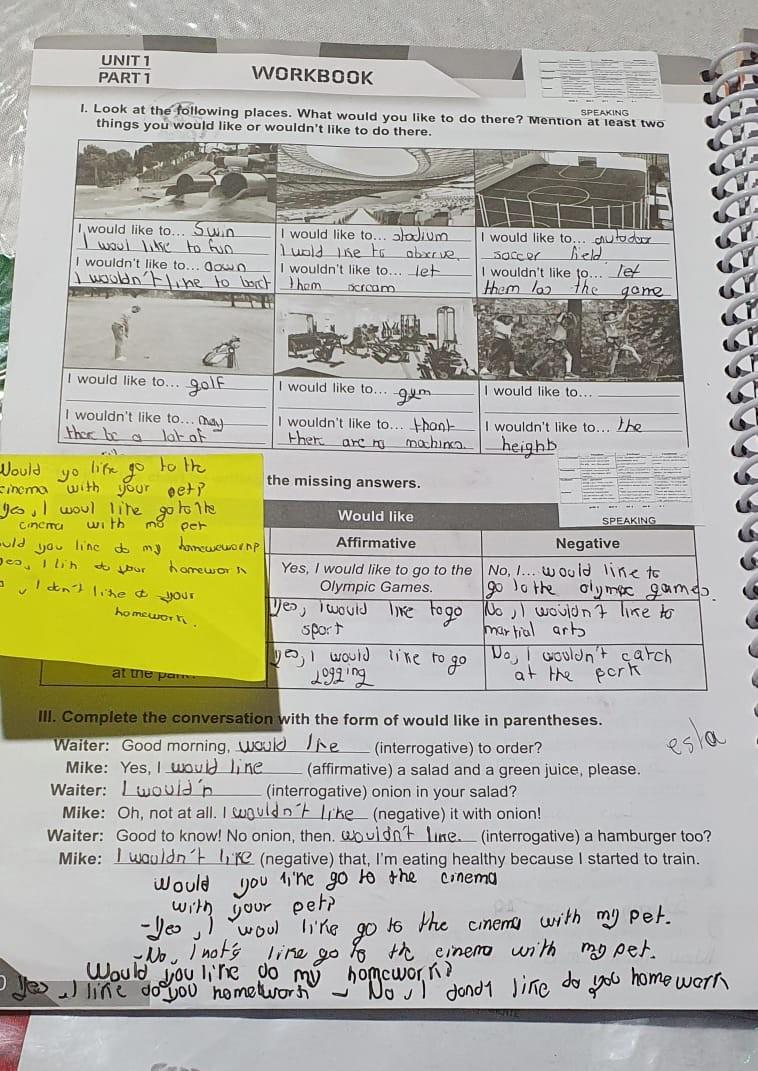 UNIT 1
PART 1
WORKBOOK
SPEAKING
I. Look at the following places. What would you like to do there? Mention at least two
things you would like or wouldn't like to do there.
I would like to... Swin
I woul like to fun
I wouldn't like to... down
I wouldn't like to
I would like to... stadium
I wold like to
I wouldn't like to... let
them scream
I would like to... outdoor
soccer field
I wouldn't like to... let
them the game
I would like to... golf
I wouldn't like to... may
there be a lot of
I would like to... gym
I wouldn't like to... thant
there are no machines
I would like to...
I wouldn't like to... the
height
Would yo like go to the
cinema with your pet?
yes, I woul like go to the
cinema with my pet
you like do my
I like do your homework
I don't like do your
homework.
the missing answers.
Would like
SPEAKING
Affirmative
Negative
Yes, I would like to go to the
Olympic Games.
No, I... would like to
go to the olympic games.
yes, I would like to go
sport
No, I wouldn't like to
martial arts
yes, I would like to go
jogging
No, I wouldn't catch
at the park
at the
III. Complete the conversation with the form of would like in parentheses.
esla
Waiter: Good morning, would like (interrogative) to order?
Mike: Yes, I would like (affirmative) a salad and a green juice, please.
Waiter: I would'n (interrogative) onion in your salad?
Mike: Oh, not at all. I wouldn't like (negative) it with onion!
Waiter: Good to know! No onion, then. wouldn't like. (interrogative) a hamburger too?
Mike: I wouldn't like (negative) that, I'm eating healthy because I started to train.
Would you like go to the cinema
with your pet?
-Yes, I woul like go to the cinema with my pet.
-No, I like go to the cinema with my pet.
Would you like do my homework?
Yes, I like do you homework - No, I dond't like do you homework